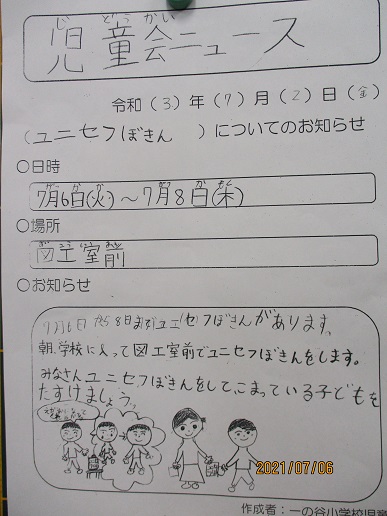 じ どう かい
児童会ニュース
令和(3)年(7)月(2)日(金)
(ユニセフぼきん)についてのお知らせ
○日時
7月6日(火)～7月8日(木)
○場所
図工室前
○お知らせ
7月6日から8日までユニセフぼきんがあります。
朝、学校に入って図工室前でユニセフぼきんをします。
みなさんユニセフぼきんをして、こまっている子どもを
たすけましょう。
2021/07/06
作成者：一の谷小学校児童